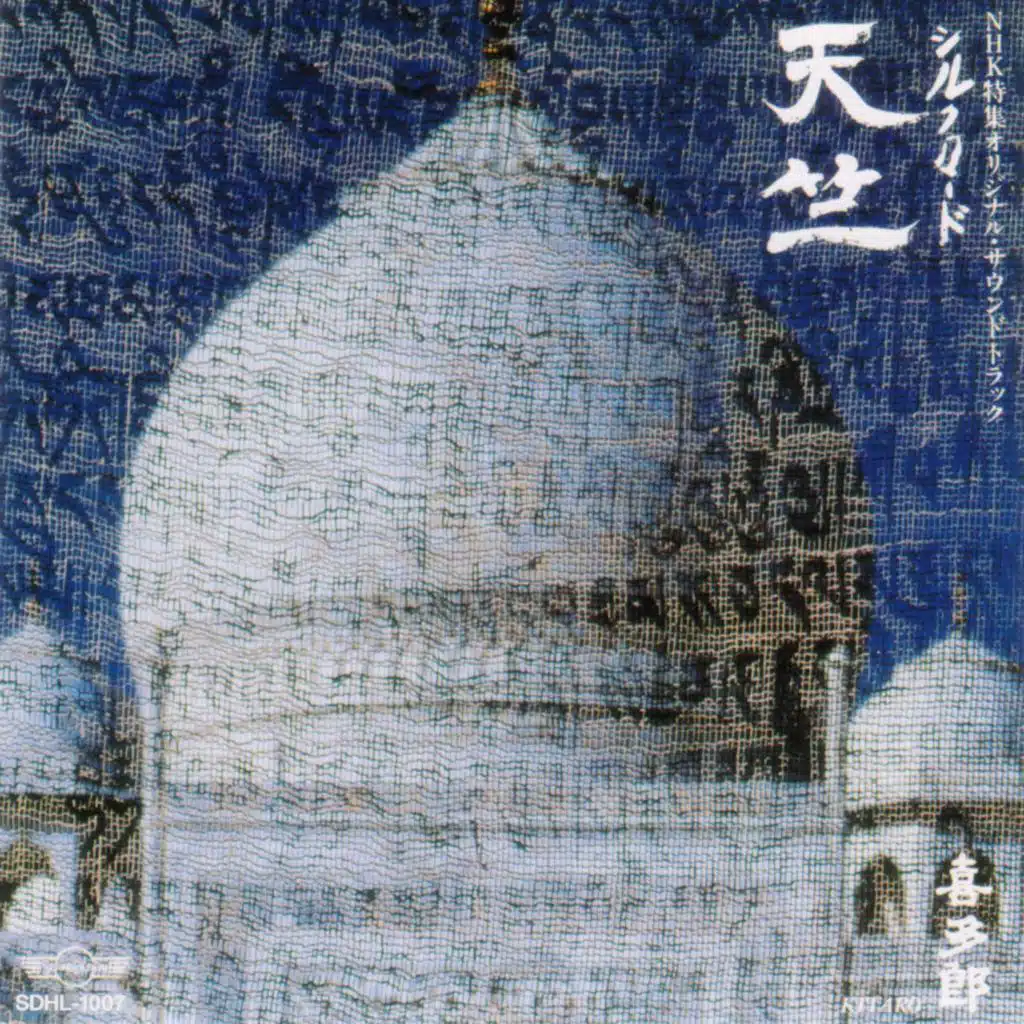 NHK特集オリジナル・サウンドトラック
シルクロード
天竺
喜多郎
KITARO
SDHL-1007